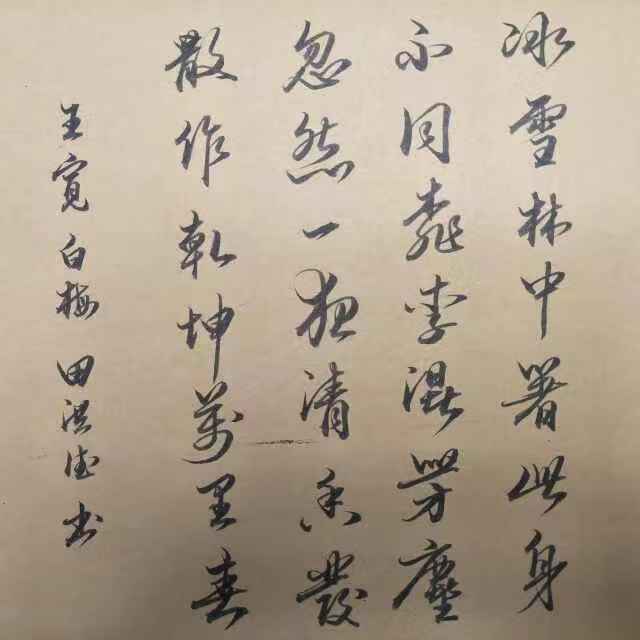 冰雪林中署此身
不同桃李混芳塵
忽然一夜清香發
散作乾坤萬里春
王寬白梅 田洪德书